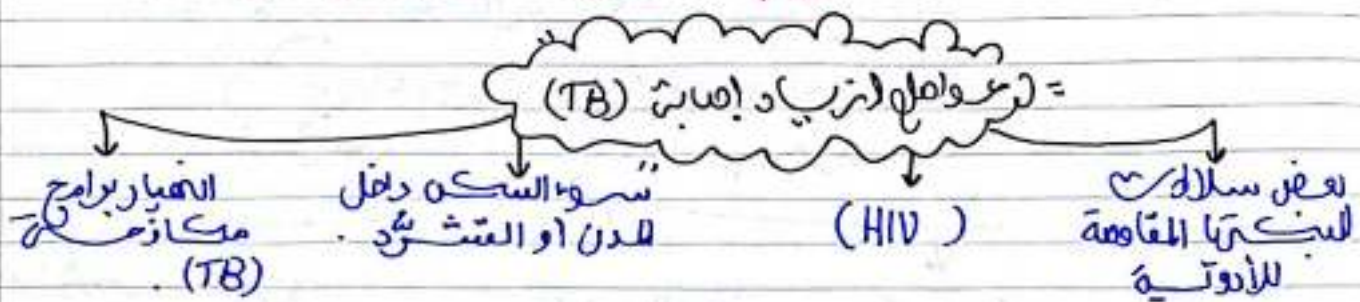 = عوامل ازدياد إصابة (TB)
بعض سلالات
البكتريا المقاومة
للأدوية
(HIV)
سوء السكن داخل
المدن أو التشرّد.
انهيار برامج
مكافحة
(TB).